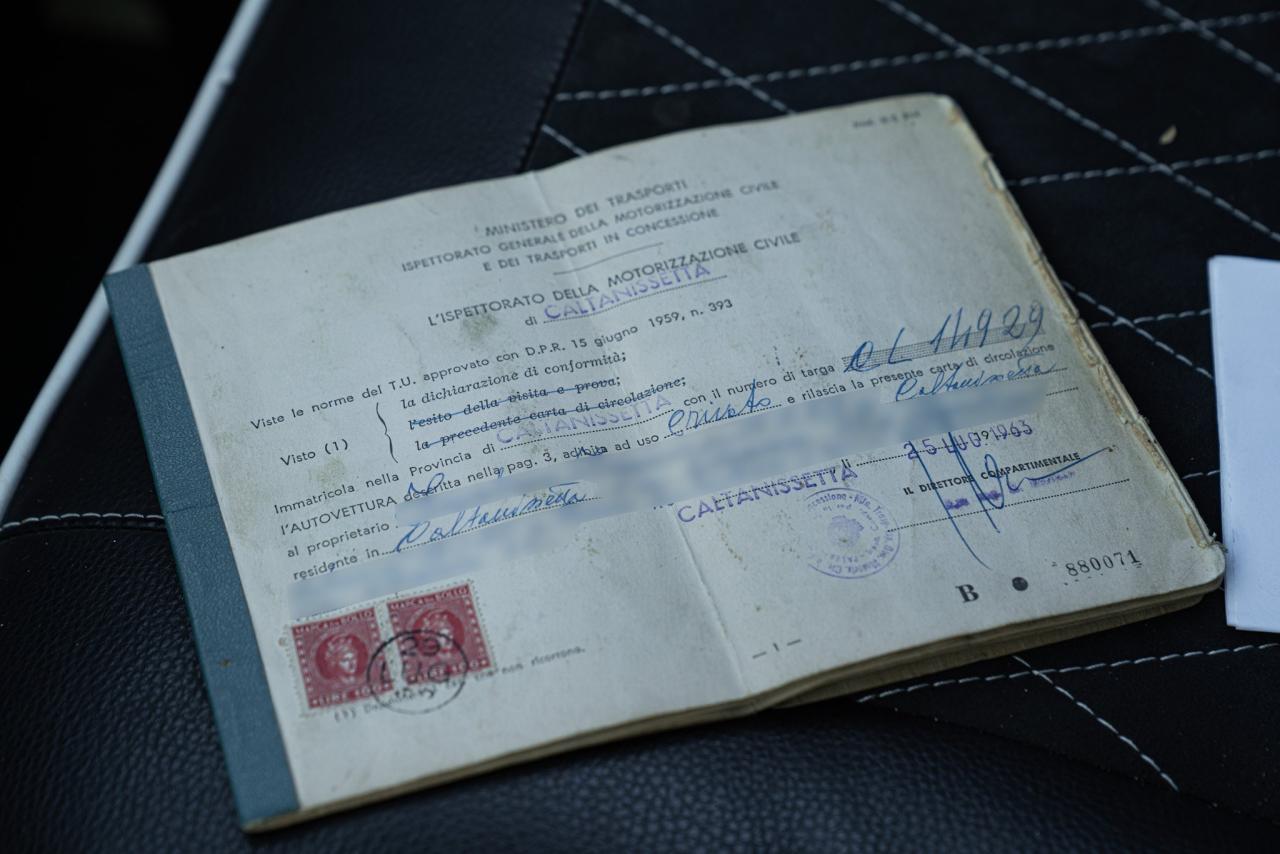 MINISTERO DEI TRASPORTI
ISPETTORATO GENERALE DELLA MOTORIZZAZIONE CIVILE
E DEI TRASPORTI IN CONCESSIONE
L'ISPETTORATO DELLA MOTORIZZAZIONE CIVILE
di CALTANISSETTA
Viste le norme del T.U. approvato con D.P.R. 15 giugno 1959, n. 393
Visto (1)
la dichiarazione di conformità;
l'esito della visita e prova;
la precedente carta di circolazione;
Immatricola nella Provincia di CALTANISSETTA con il numero di targa CL 14929
l'AUTOVETTURA descritta nella pag. 3, adibita ad uso privato e rilascia la presente carta di circolazione
al proprietario Caltanissetta
residente in Caltanissetta
CALTANISSETTA, li 25 LUG 1963
IL DIRETTORE COMPARTIMENTALE
B 880071
MARCA DA BOLLO MARCA DA BOLLO
LIRE
— 1 —
(1) che non ricorrono.